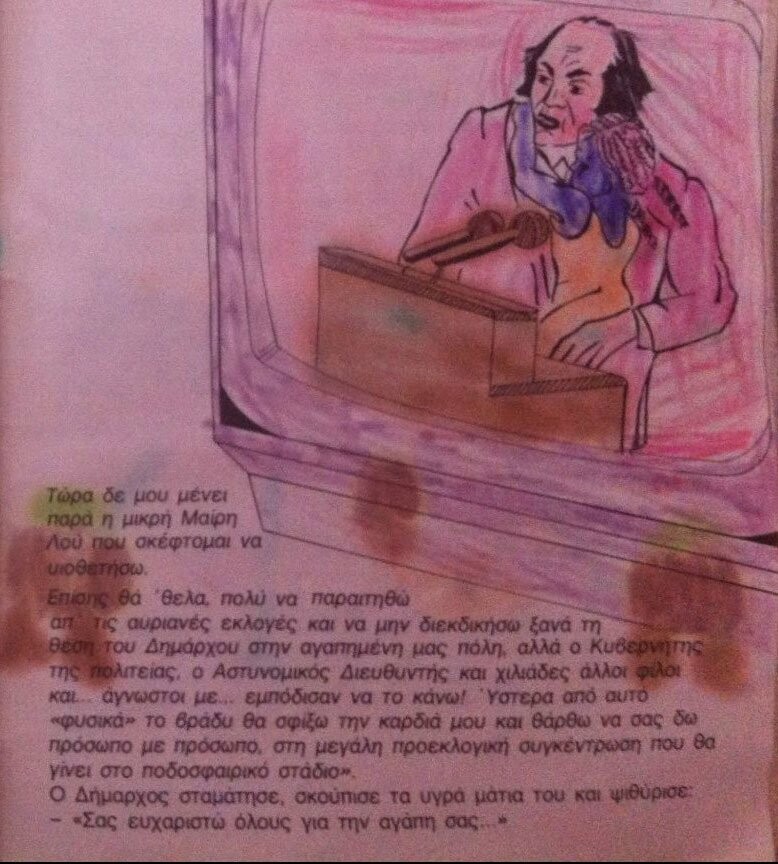 Τώρα δε μου μένει
παρά η μικρή Μαίρη
Λού που σκέφτομαι να
υιοθετήσω.
Επίσης θά ΄θελα, πολύ να παραιτηθώ
απ΄ τις αυριανές εκλογές και να μην διεκδικήσω ξανά τη
θέση του Δημάρχου στην αγαπημένη μας πόλη, αλλά ο Κυβερνήτης
της πολιτείας, ο Αστυνομικός Διευθυντής και χιλιάδες άλλοι φίλοι
και... άγνωστοι με... εμπόδισαν να το κάνω! Ύστερα από αυτό
«φυσικά» το βράδυ θα σφίξω την καρδιά μου και θάρθω να σας δω
πρόσωπο με πρόσωπο, στη μεγάλη προεκλογική συγκέντρωση που θα
γίνει στο ποδοσφαιρικό στάδιο».
Ο Δήμαρχος σταμάτησε, σκούπισε τα υγρά μάτια του και ψιθύρισε:
– «Σας ευχαριστώ όλους για την αγάπη σας...»